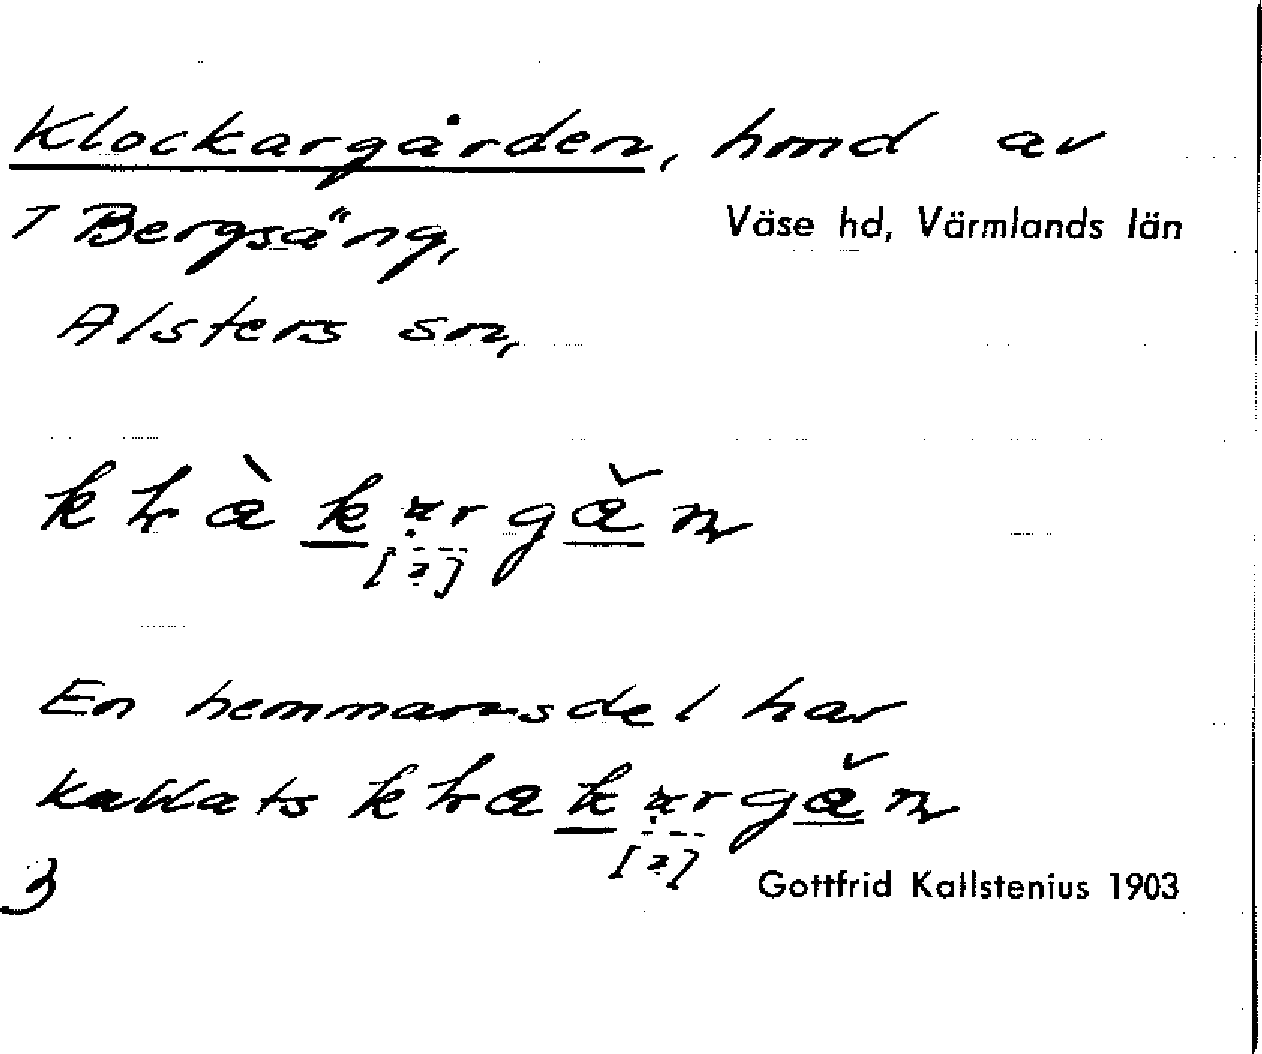 Klockargården, hmd av
7 Bergsäng,
Väse hd, Värmlands län
Alsters sn,
[?]
En hemmansdel har
kallats
[?]
3
Gottfrid Kallstenius 1903